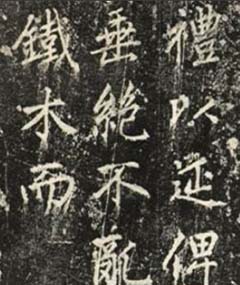 禮以延俾
垂絶不亂
鐵木而